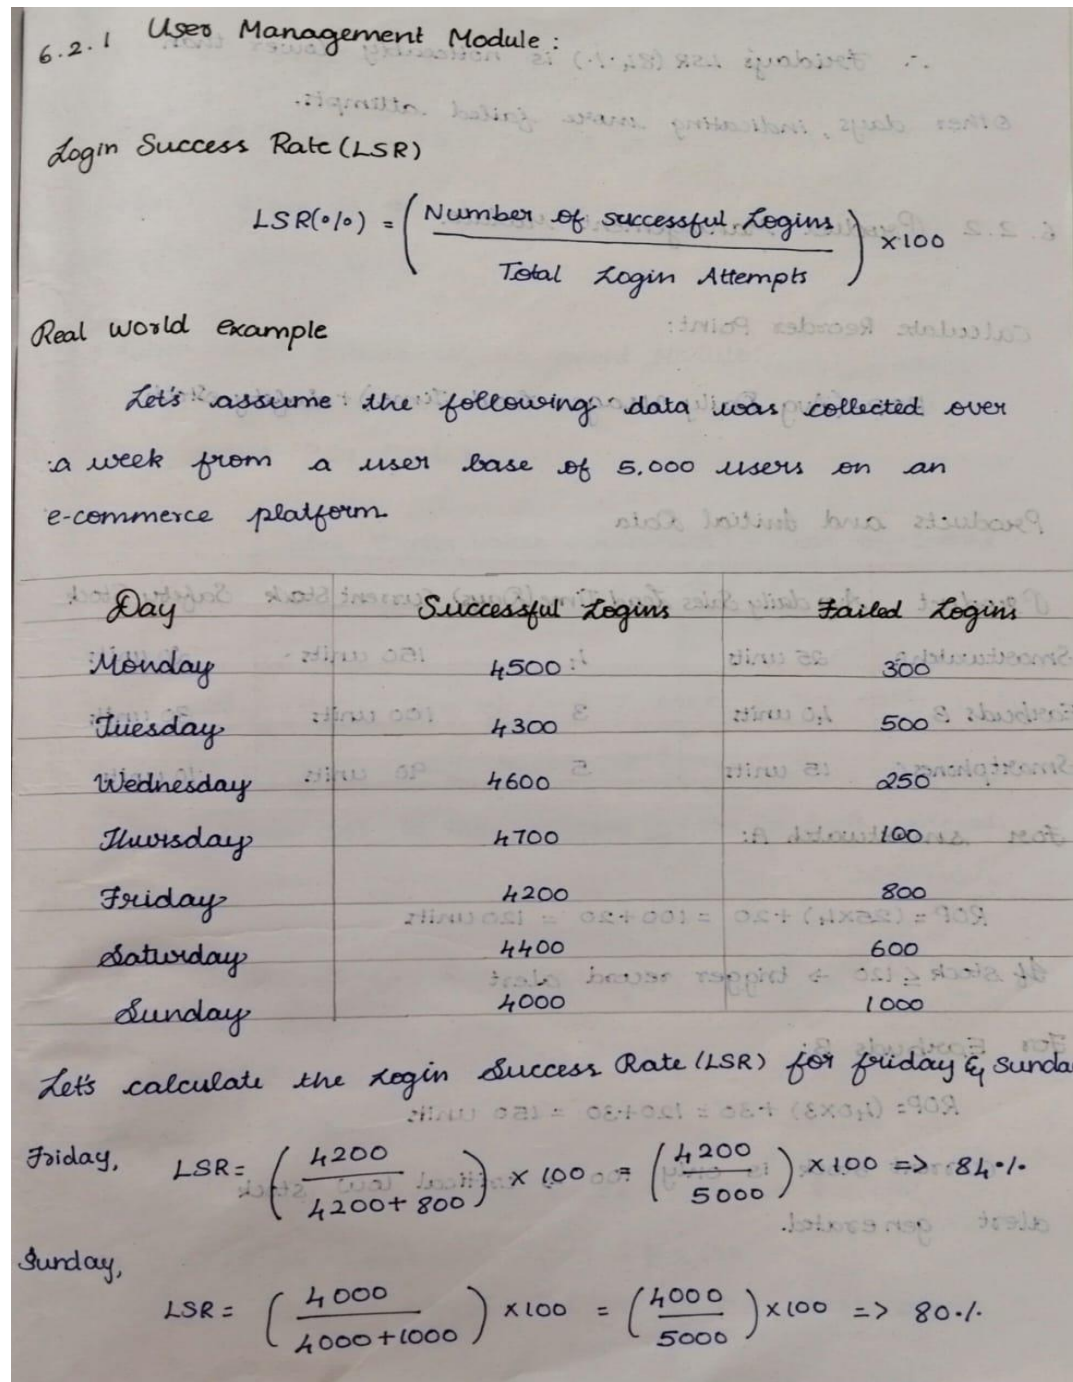 6.2.1 User Management Module :
Login Success Rate (LSR)
LSR(%) = (Number of successful Logins / Total Login Attempts) x100
Real world example
Let's assume the following data was collected over
a week from a user base of 5,000 users on an
e-commerce platform
Day Successful Logins Failed Logins
Monday 4500 300
Tuesday 4300 500
Wednesday 4600 250
Thursday 4700 100
Friday 4200 800
Saturday 4400 600
Sunday 4000 1000
Let's calculate the Login Success Rate (LSR) for friday & Sunda
Friday, LSR = (4200 / 4200+800) x 100 = (4200 / 5000) x100 => 84%
Sunday,
LSR = (4000 / 4000+1000) x100 = (4000 / 5000) x100 => 80%